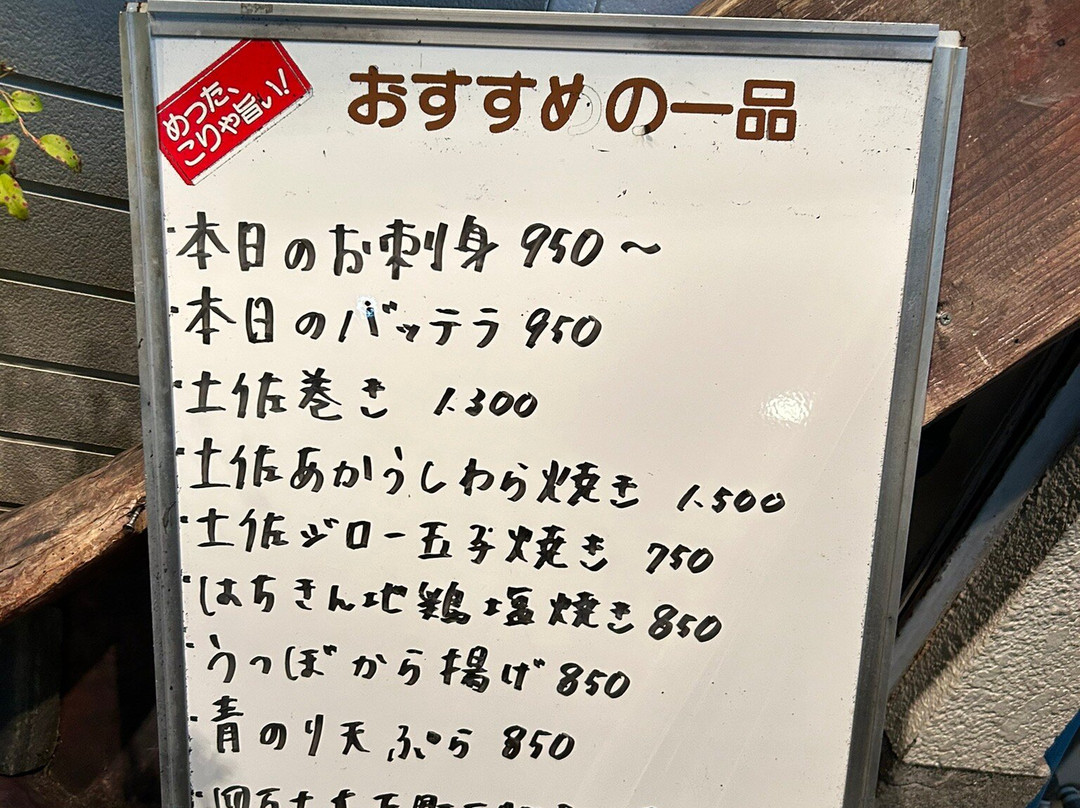 めった、
こりゃ旨い!
おすすめの一品
・本日のお刺身 950～
・本日のバッテラ 950
・土佐巻き 1.300
・土佐あかうしわら焼き 1.500
・土佐ジロー玉子焼き 750
・はちきん地鶏塩焼き 850
・うつぼから揚げ 850
・青のり天ぷら 850